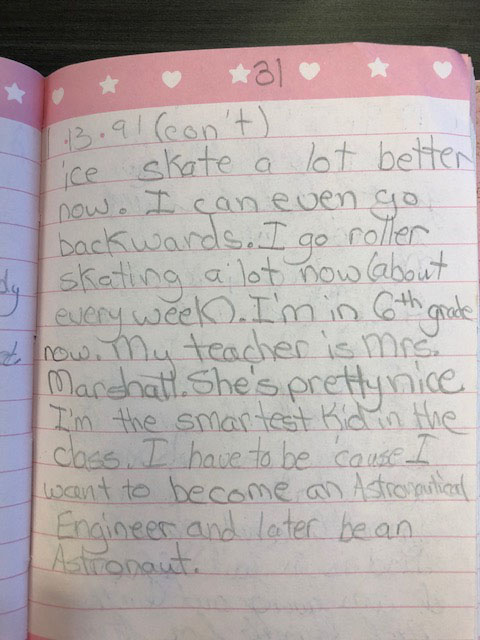 31
1.13.91 (con't)
ice skate a lot better
now. I can even go
backwards. I go roller
skating a lot now (about
every week). I'm in 6th grade
now. My teacher is Mrs.
Marshall. She's pretty nice.
I'm the smartest kid in the
class. I have to be 'cause I
want to become an Astronautical
Engineer and later be an
Astronaut.